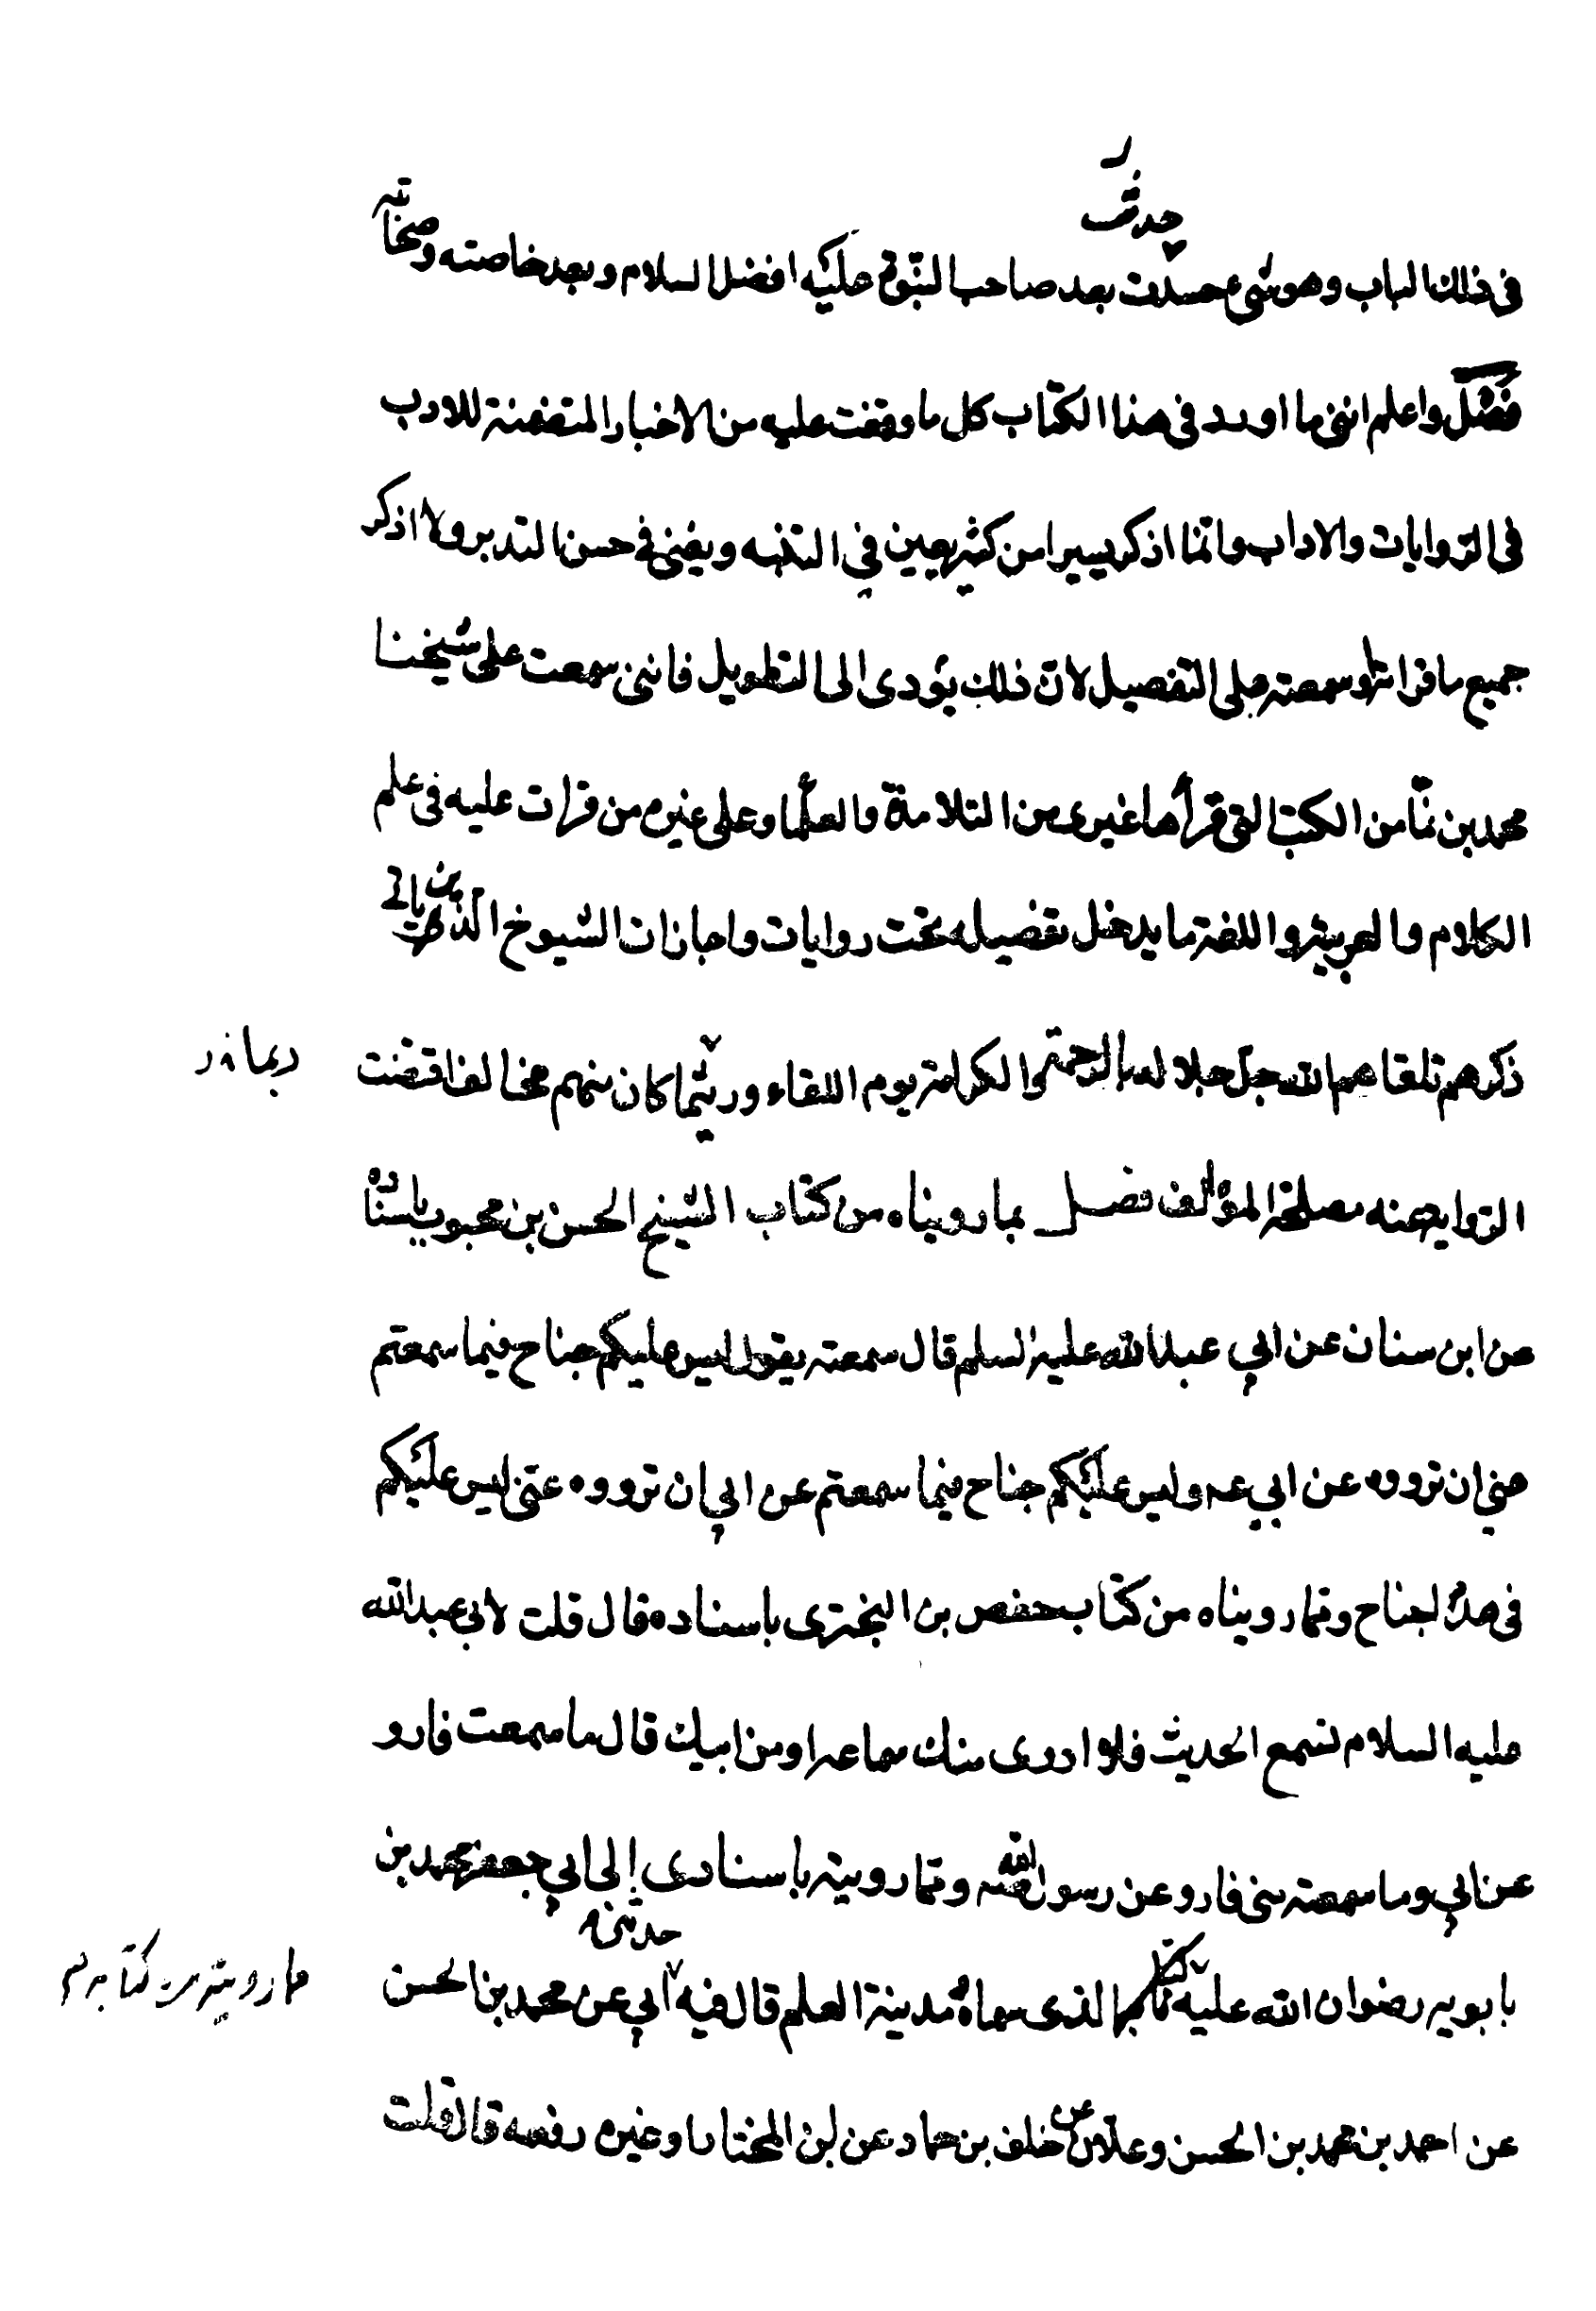 حدثت
فى ذلك الباب وهو شىء حسدت بعد صاحب النبوة عليه افضل السلام وبعد خاصته وصحابته
فصل واعلم اننى ما اورد فى هذا الكتاب كل ما وقفت عليه من الاخبار المتضمنة للادب
فى الروايات والاداب وانما اذكر يسيرا من كثير يعين في التنبه ويغنى في حسن التدبر ولا اذكر
جميع ما قراته او سمعته على التفصيل لان ذلك يؤدى الى التطويل فاننى سمعت على شيخنا
محمد بن نما من الكتب التى قرأها غيرى من التلامذة والعلماء وعلى غيره من قرات عليه فى علم
الكلام والعربية واللغة ما يدخل تفضيله تحت روايات واجازات الشيوخ الذين ياتى
ذكرهم تلقاهم الله جل جلاله بالرحمة والكرامة يوم اللقاء وربما كان منهم مخالفا اقتضت
ربما
الرواية عنه مصلحة المؤالف فصل بما رويناه من كتاب الشيخ الحسن بن محبوب باسناده
عن ابن سنان عن ابي عبد الله عليه السلم قال سمعته يقول ليس عليكم جناح فيما سمعتم
منى ان ترووه عن ابي عه وليس عليكم جناح فيما سمعتم عن ابي ان ترووه عنى ليس عليكم
فى هذا جناح ومما رويناه من كتاب حفص بن البخترى باسناده قال قلت لابى عبد الله
عليه السلام نسمع الحديث فلا ادرى منك سماعه او من ابيك قال ما سمعت فارو
عن ابي وما سمعته منى فارو عن رسول الله ومما رويته باسنادى الى ابي جعفر محمد بن
حدثنى
بابويه رضوان الله عليه كتابه الذى سماه مدينة العلم قال فيه ابي عن محمد بن الحسن
ما رويته من كتابه
عن احمد بن محمد بن الحسن وعلان عن خلف بن حماد عن ابن المختار او غيره رفعه قال قلت